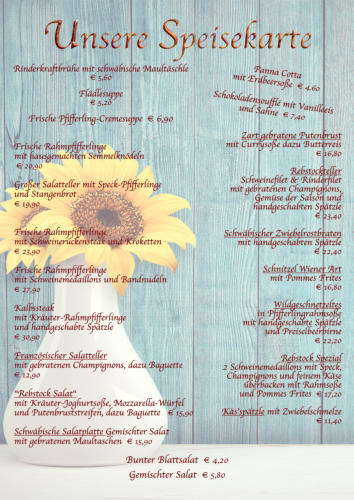 Unsere Speisekarte
Rinderkraftbrühe mit schwäbische Maultäschle
€ 5,60
Flädlesuppe
€ 5,20
Frische Pfifferling-Cremesuppe € 6,90
Frische Rahmpfifferlinge
mit hausgemachten Semmelknödeln
€ 20,90
Großer Salatteller mit Speck-Pfifferlinge
und Stangenbrot
€ 19,90
Frische Rahmpfifferlinge
mit Schweinerückensteak und Kroketten
€ 23,90
Frische Rahmpfifferlinge
mit Schweinemedaillons und Bandnudeln
€ 27,90
Kalbssteak
mit Kräuter-Rahmpfifferlinge
und handgeschabte Spätzle
€ 30,90
Französischer Salatteller
mit gebratenen Champignons, dazu Baguette
€ 12,90
"Rebstock Salat"
mit Kräuter-Joghurtsoße, Mozzarella-Würfel
und Putenbruststreifen, dazu Baguette € 15,90
Schwäbische Salatplatte Gemischter Salat
mit gebratenen Maultaschen € 15,90
Panna Cotta
mit Erdbeersoße € 4,60
Schokoladensoufflé mit Vanilleeis
und Sahne € 7,40
Zart gebratene Putenbrust
mit Currysoße dazu Butterreis
€ 16,80
Rebstockteller
Schweinefilet & Rinderfilet
mit gebratenen Champignons,
Gemüse der Saison und
handgeschabten Spätzle
€ 23,40
Schwäbischer Zwiebelrostbraten
mit handgeschabten Spätzle
€ 22,40
Schnitzel Wiener Art
mit Pommes Frites
€ 16,80
Wildgeschnetzeltes
in Pfifferlingrahmsoße
mit handgeschabte Spätzle
und Preiselbeerbirne
€ 22,20
Rebstock Spezial
2 Schweinemedaillons mit Speck,
Champignons und feinem Käse
überbacken mit Rahmsoße
und Pommes Frites € 17,20
Käs'spätzle mit Zwiebelschmelze
€ 11,40
Bunter Blattsalat € 4,20
Gemischter Salat € 5,80